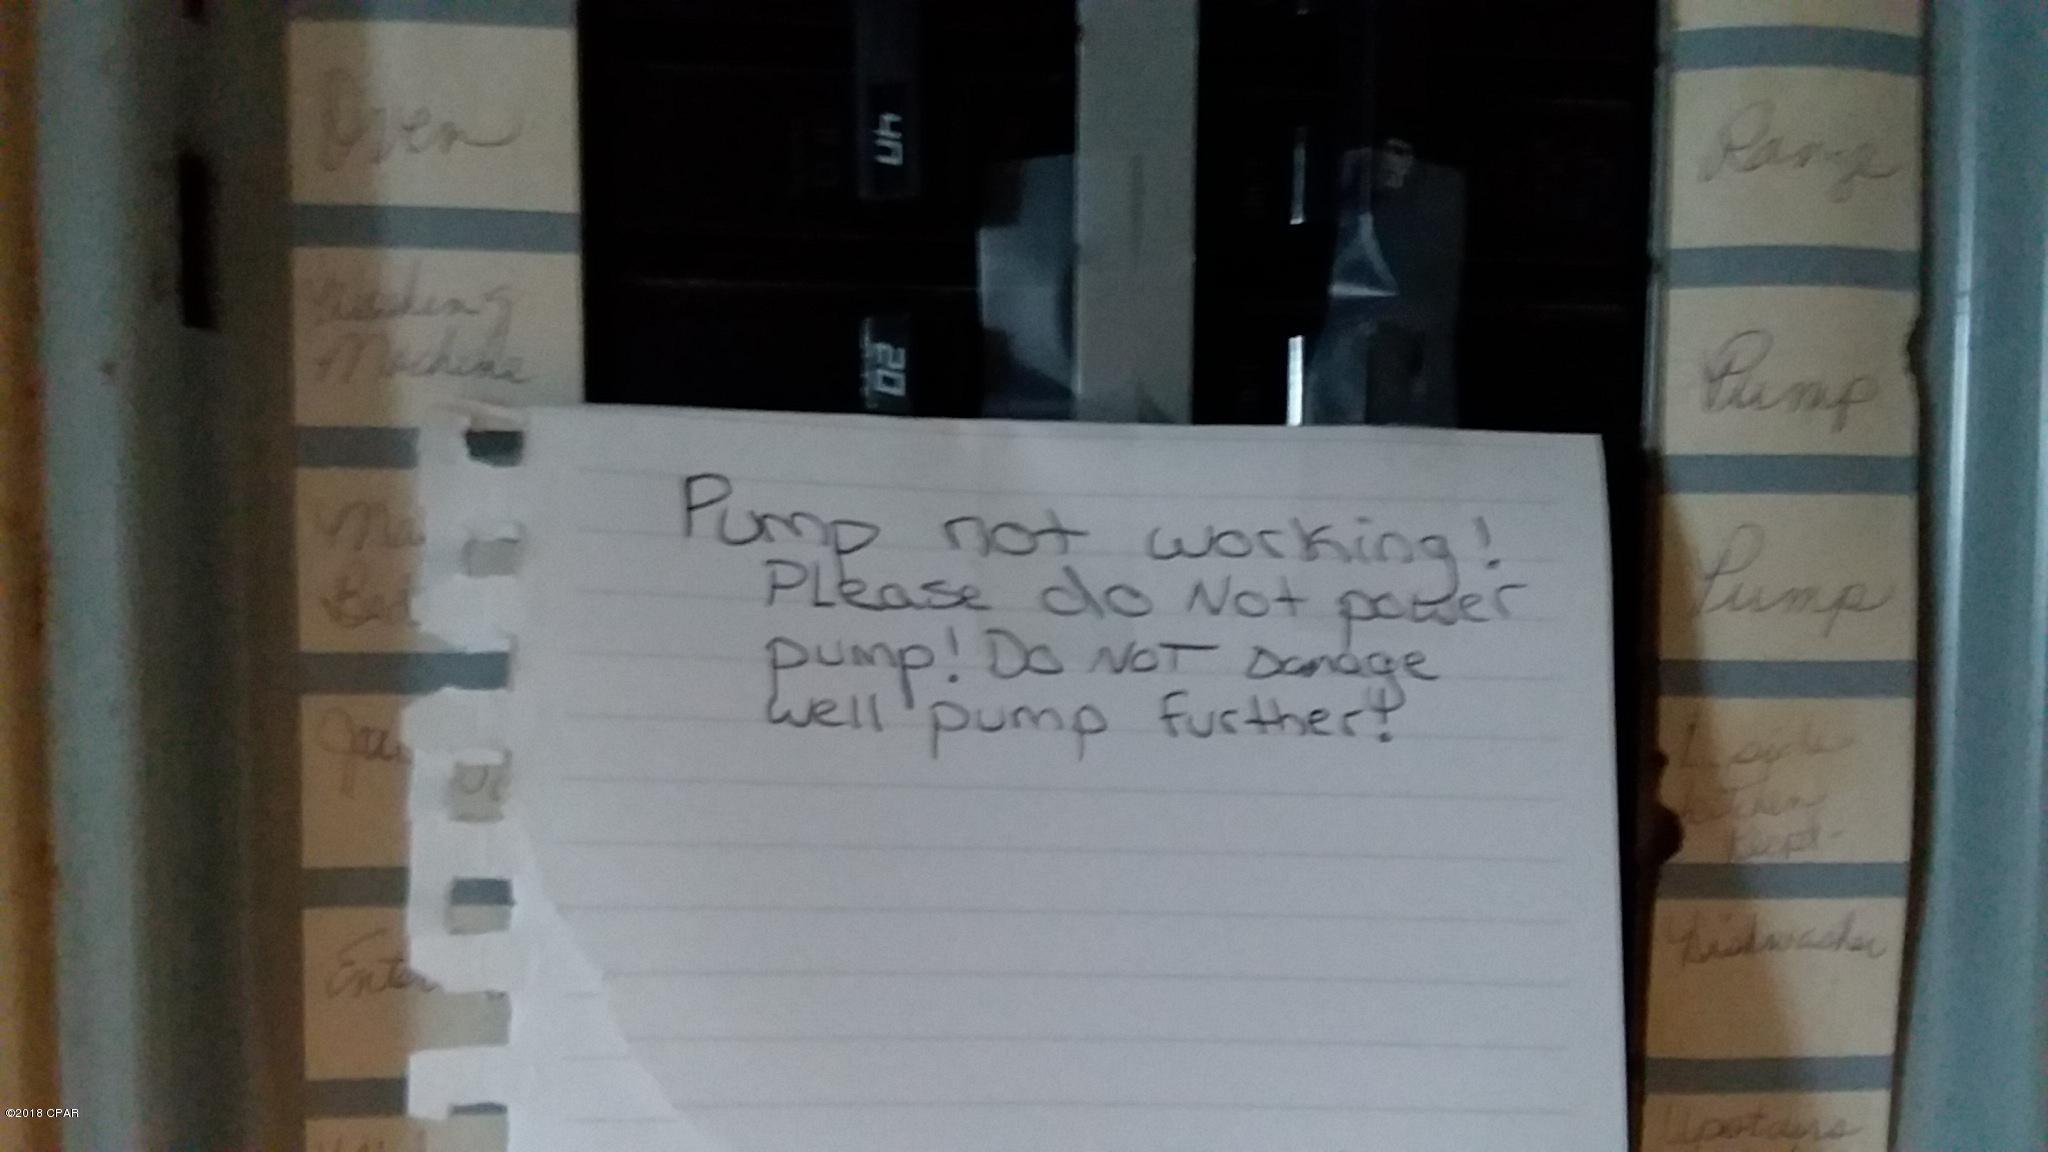 Oven
Washing
Machine
40
20
Range
Pump
Pump
Pump not working!
Please do Not power
pump! Do NOT Damage
well pump further!
Ma
Bed
Enter
L side
Kitchen
Recpt-
Dishwasher
Upstairs
©2018 CPAR